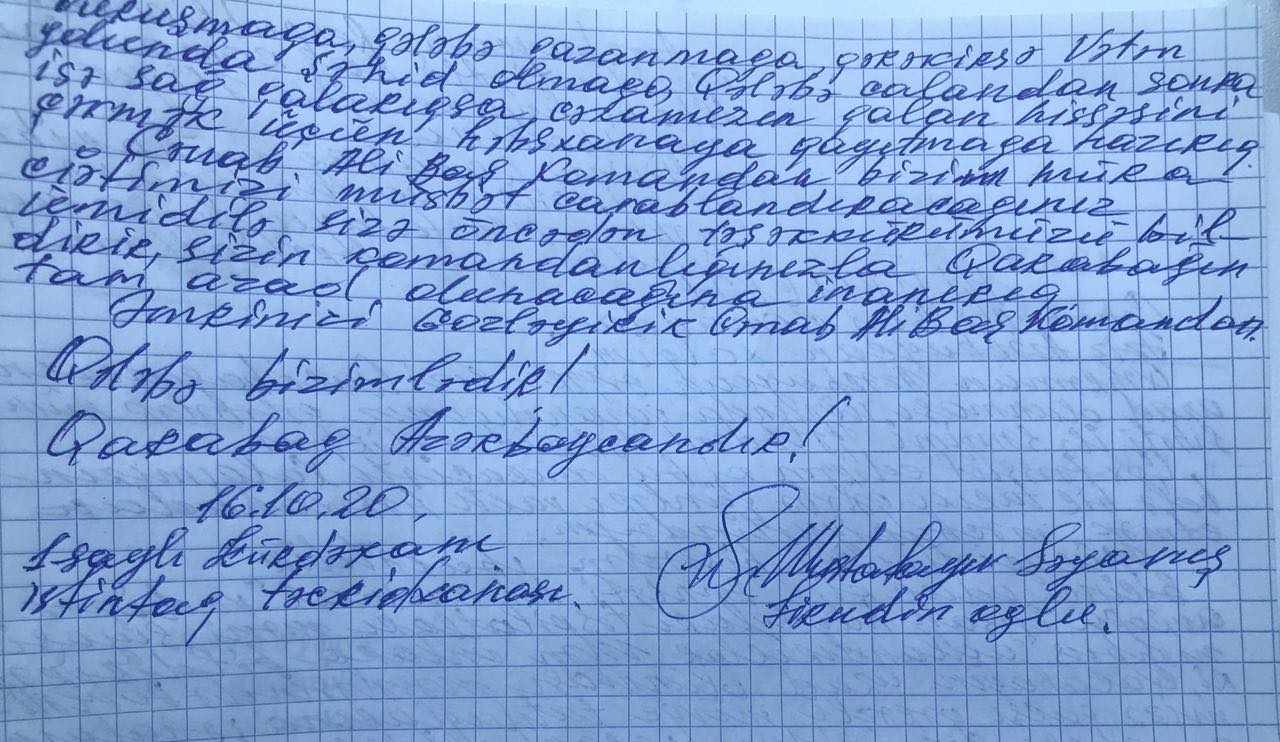 vuruşmağa, qələbə qazanmağa, gərəkirsə Vətən
yolunda şəhid olmağa, Qələbə çalandan sonra
isə sağ qalarıqsa cəzamızın qalan hissəsini
çəkmək üçün həbsxanaya qayıtmağa hazırıq.
Cənab Ali Baş Komandan bizim müra
ciətimizi müsbət cavablandıracağınız
ümidilə sizə öncədən təşəkkürümüzü bil-
dirir, sizin komandanlığınızla Qarabağın
tam azad olunacağına inanırıq
Əmrinizi Gözləyirik Cənab Ali Baş Komandan.
Qələbə bizimlədir!
Qarabağ Azərbaycandır!
16.10.20.
1 saylı Kürdəxanı
istintaq təcridxanası.
Səyavuş
Firudin oğlu.